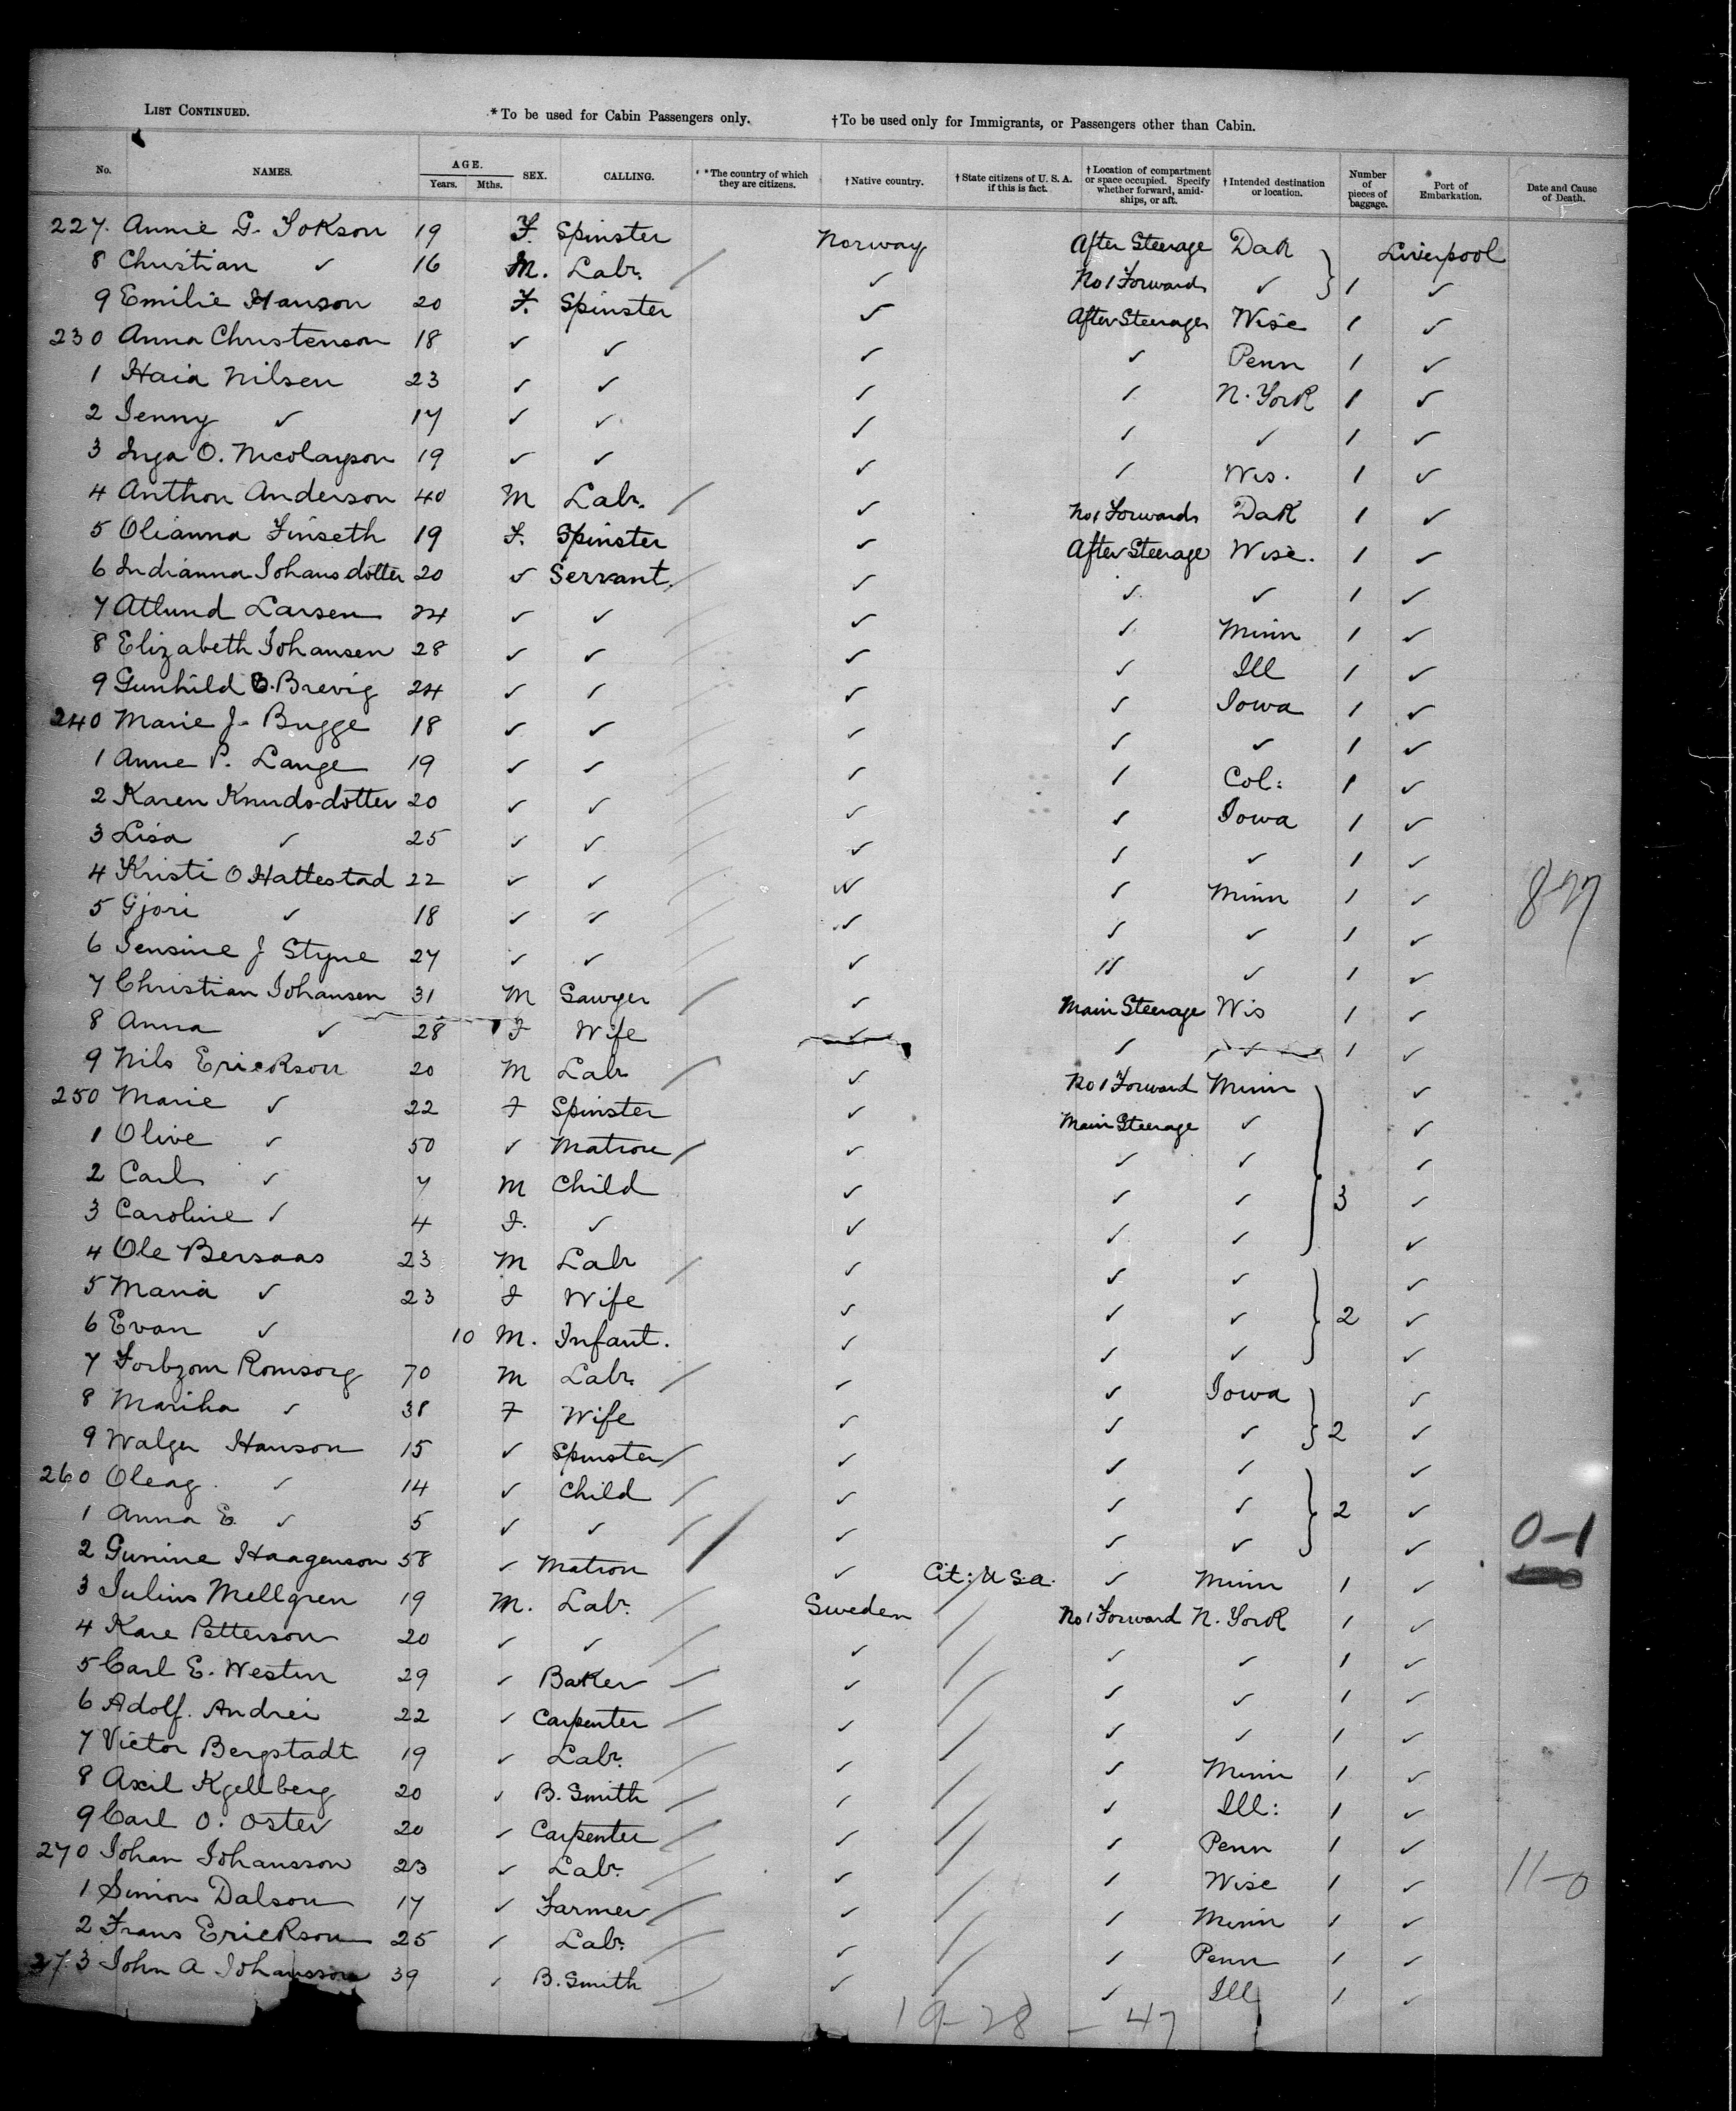 LIST CONTINUED. *To be used for Cabin Passengers only. †To be used only for Immigrants, or Passengers other than Cabin.
No. NAMES. AGE. Years. Mths. SEX. CALLING. *The country of which they are citizens. †Native country. †State citizens of U. S. A. if this is fact. †Location of compartment or space occupied. Specify whether forward, amidships, or aft. †Intended destination or location. Number of pieces of baggage. Port of Embarkation. Date and Cause of Death.
227. Annie G. Jokson 19 F. Spinster Norway After Steerage Dak Liverpool
8 Christian ✓ 16 M. Labr. ✓ No 1 Forwards ✓ } 1 ✓
9 Emilie Hanson 20 F. Spinster ✓ After Steerage Wisc 1 ✓
230 Anna Christenson 18 ✓ ✓ ✓ ✓ Penn 1 ✓
1 Haia Nilsen 23 ✓ ✓ ✓ ✓ N. York 1 ✓
2 Jenny ✓ 17 ✓ ✓ ✓ ✓ ✓ 1 ✓
3 Inga O. Nicolayson 19 ✓ ✓ ✓ ✓ Wis. 1 ✓
4 Anthon Anderson 40 M Labr. ✓ No 1 Forwards Dak 1 ✓
5 Olianna Finseth 19 F. Spinster ✓ After Steerage Wisc. 1 ✓
6 Indianna Johansdotter 20 ✓ Servant. ✓ ✓ ✓ 1 ✓
7 Atlund Larsen 24 ✓ ✓ ✓ ✓ Minn 1 ✓
8 Elizabeth Johansen 28 ✓ ✓ ✓ ✓ Ill 1 ✓
9 Gunhild B. Brevig 24 ✓ ✓ ✓ ✓ Iowa 1 ✓
240 Marie J. Bugge 18 ✓ ✓ ✓ ✓ ✓ 1 ✓
1 Anne P. Lange 19 ✓ ✓ ✓ ✓ Col: 1 ✓
2 Karen Knuds-dotter 20 ✓ ✓ ✓ ✓ Iowa 1 ✓
3 Lisa ✓ 25 ✓ ✓ ✓ ✓ ✓ 1 ✓
4 Kristi O Hattestad 22 ✓ ✓ ✓ ✓ Minn 1 ✓
5 Gjori ✓ 18 ✓ ✓ ✓ ✓ ✓ 1 ✓
6 Jensine J Styne 27 ✓ ✓ ✓ ✓ ✓ 1 ✓
7 Christian Johansen 31 M Sawyer ✓ Main Steerage Wis 1 ✓
8 Anna ✓ 28 F Wife ✓ ✓ ✓ 1 ✓
9 Nils Erickson 20 M Labr ✓ No 1 Forward Minn ✓
250 Marie ✓ 22 F Spinster ✓ Main Steerage ✓ ✓
1 Olive ✓ 50 ✓ Matron ✓ ✓ ✓ ✓
2 Carl ✓ 7 M Child ✓ ✓ ✓ } 3 ✓
3 Caroline ✓ 4 F. ✓ ✓ ✓ ✓ ✓
4 Ole Bersaas 23 M Labr ✓ ✓ ✓ ✓
5 Maria ✓ 23 F Wife ✓ ✓ ✓ } 2 ✓
6 Evan ✓ 10 M. Infant. ✓ ✓ ✓ ✓
7 Romsorg 70 M Labr. ✓ ✓ Iowa ✓
8 Mariha ✓ 38 F Wife ✓ ✓ ✓ } 2 ✓
9 Walger Hanson 15 ✓ Spinster ✓ ✓ ✓ ✓
260 Oleag ✓ 14 ✓ Child ✓ ✓ ✓ } 2 ✓
1 Anna E. ✓ 5 ✓ ✓ ✓ ✓ ✓ ✓
2 Gunine Haagenson 58 ✓ Matron ✓ Cit: U S.a. ✓ Minn 1 ✓
3 Julius Mellgren 19 M. Labr. Sweden No 1 Forward N. York 1 ✓
4 Kare Petterson 20 ✓ ✓ ✓ ✓ ✓ 1 ✓
5 Carl E. Westin 29 ✓ Baker ✓ ✓ ✓ 1 ✓
6 Adolf. Andrei 22 ✓ Carpenter ✓ ✓ ✓ 1 ✓
7 Victor Bergstadt 19 ✓ Labr. ✓ ✓ Minn 1 ✓
8 Axil Kjellberg 20 ✓ B. Smith ✓ ✓ Ill: 1 ✓
9 Carl O. Oster 20 ✓ Carpenter ✓ ✓ Penn 1 ✓
270 Johan Johansson 23 ✓ Labr. ✓ ✓ Wisc 1 ✓
1 Simon Dalson 17 ✓ Farmer ✓ ✓ Minn 1 ✓
2 Frans Erickson 25 ✓ Labr. ✓ ✓ Penn 1 ✓
273 John A Johansson 39 ✓ B. Smith ✓ ✓ Ill 1 ✓
0-1
11-0
19-28-47